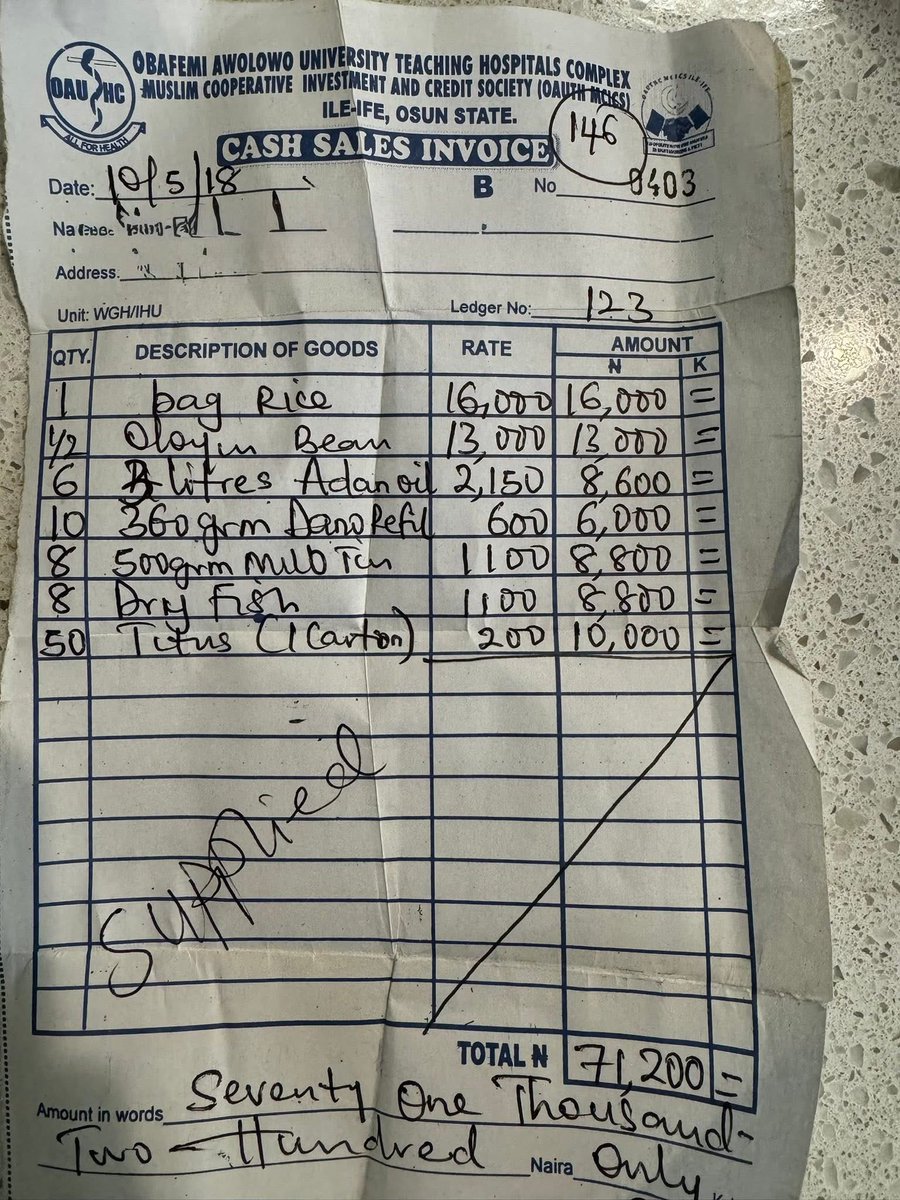 OBAFEMI AWOLOWO UNIVERSITY TEACHING HOSPITALS COMPLEX
MUSLIM COOPERATIVE INVESTMENT AND CREDIT SOCIETY (OAUTH MCICS)
ILE-IFE, OSUN STATE.
OAU HC
ALL FOR HEALTH
CASH SALES INVOICE
146
Date: 10/5/18 B No 0403
Address.
Unit: WGH/IHU Ledger No: 123
QTY. DESCRIPTION OF GOODS RATE AMOUNT
₦ K
1 bag Rice 16,000 16,000 =
1/2 Oloyin Bean 13,000 13,000 =
6 litres Adan oil 2,150 8,600 =
10 360grm Dano Refil 600 6,000 =
8 500grm Milo Tin 1100 8,800 =
8 Dry Fish 1100 8,800 =
50 Titus (1 Carton) 200 10,000 =
Supplied
TOTAL ₦ 71,200 =
Amount in words Seventy One Thousand-
Two-Hundred Naira Only